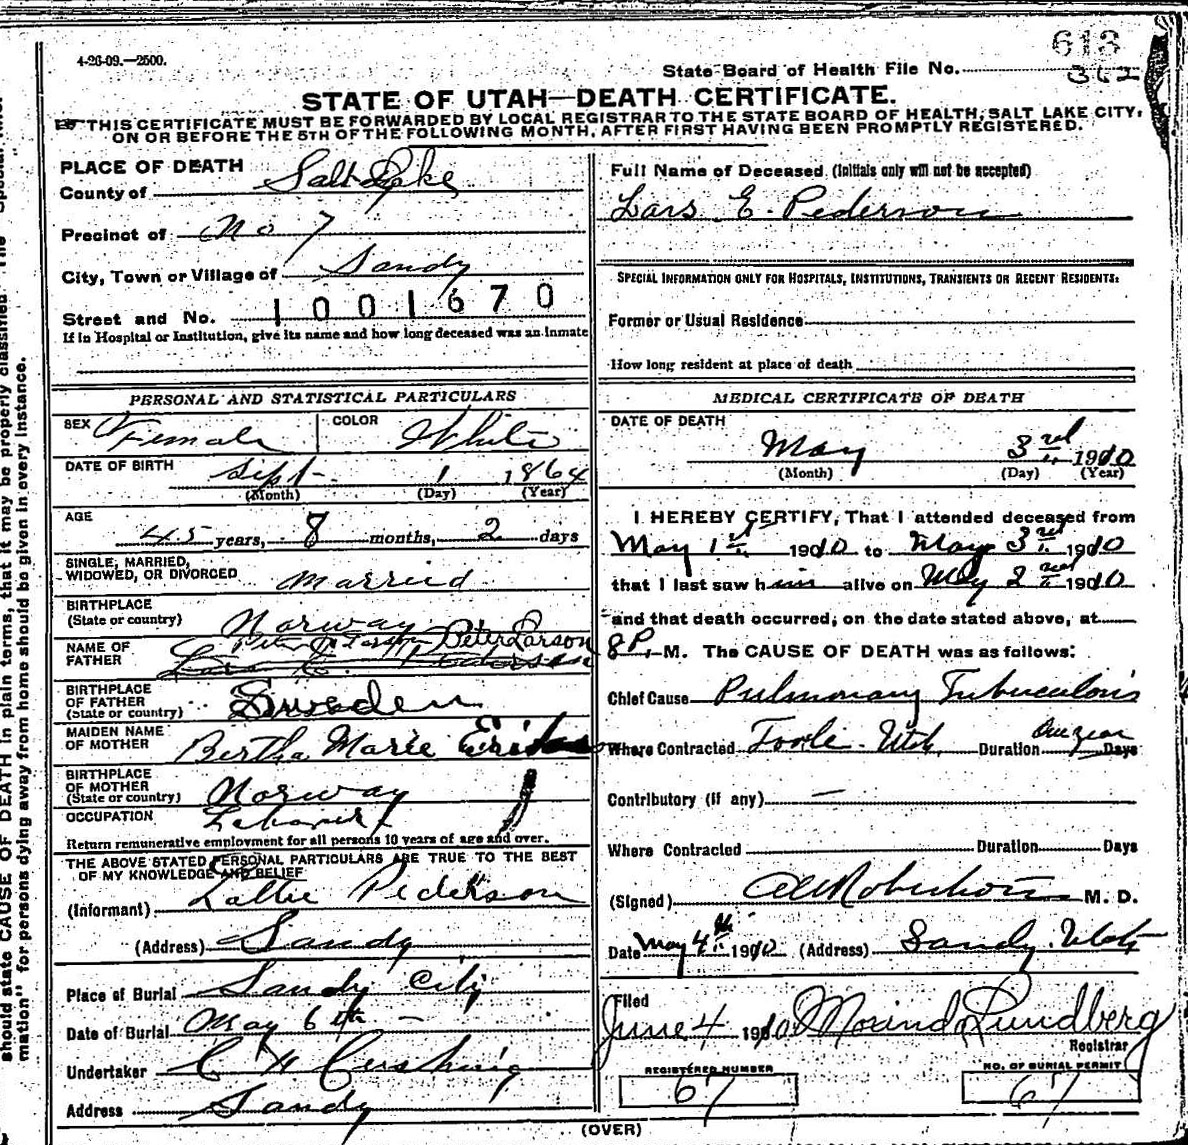 4-26-09.—2500.
613
State Board of Health File No.
362
STATE OF UTAH—DEATH CERTIFICATE.
THIS CERTIFICATE MUST BE FORWARDED BY LOCAL REGISTRAR TO THE STATE BOARD OF HEALTH, SALT LAKE CITY,
ON OR BEFORE THE 5TH OF THE FOLLOWING MONTH, AFTER FIRST HAVING BEEN PROMPTLY REGISTERED.
PLACE OF DEATH
County of Salt Lake
Precinct of No 7
City, Town or Village of Sandy
Street and No. 1001670
If in Hospital or Institution, give its name and how long deceased was an inmate
PERSONAL AND STATISTICAL PARTICULARS
SEX Female COLOR White
DATE OF BIRTH Sept. 1 1864
(Month) (Day) (Year)
AGE
45 years, 8 months, 2 days
SINGLE, MARRIED,
WIDOWED, OR DIVORCED married
BIRTHPLACE
(State or country) Norway
NAME OF
FATHER Peter Larson
Lars E. Pederson
BIRTHPLACE
OF FATHER
(State or country) Sweden
MAIDEN NAME
OF MOTHER Bertha Marie
BIRTHPLACE
OF MOTHER
(State or country) Norway
OCCUPATION Laborer
Return remunerative employment for all persons 10 years of age and over.
THE ABOVE STATED PERSONAL PARTICULARS ARE TRUE TO THE BEST
OF MY KNOWLEDGE AND BELIEF
(Informant) Lottie Pederson
(Address) Sandy
Place of Burial Sandy City
Date of Burial May 6th
Undertaker C H Cushing
Address Sandy
Full Name of Deceased (Initials only will not be accepted)
Lars E. Pederson
SPECIAL INFORMATION ONLY FOR HOSPITALS, INSTITUTIONS, TRANSIENTS OR RECENT RESIDENTS:
Former or Usual Residence
How long resident at place of death
MEDICAL CERTIFICATE OF DEATH
DATE OF DEATH
May 3rd 1910
(Month) (Day) (Year)
I HEREBY CERTIFY, That I attended deceased from
May 1st 1910 to May 3rd 1910
that I last saw him alive on May 2nd 1910
and that death occurred, on the date stated above, at
8P. M. The CAUSE OF DEATH was as follows:
Chief Cause Pulmonary Tuberculosis
Where Contracted Tooele. Utah. Duration One year Days
Contributory (if any) —
Where Contracted Duration Days
(Signed) Robertson M. D.
Date May 4th 1910 (Address) Sandy. Utah
Filed
June 4 1910 Lundberg
Registrar
REGISTERED NUMBER
67
NO. OF BURIAL PERMIT
67
(OVER)
should state CAUSE OF DEATH in plain terms, that it may be properly classified. The "Special
mation" for persons dying away from home should be given in every instance.